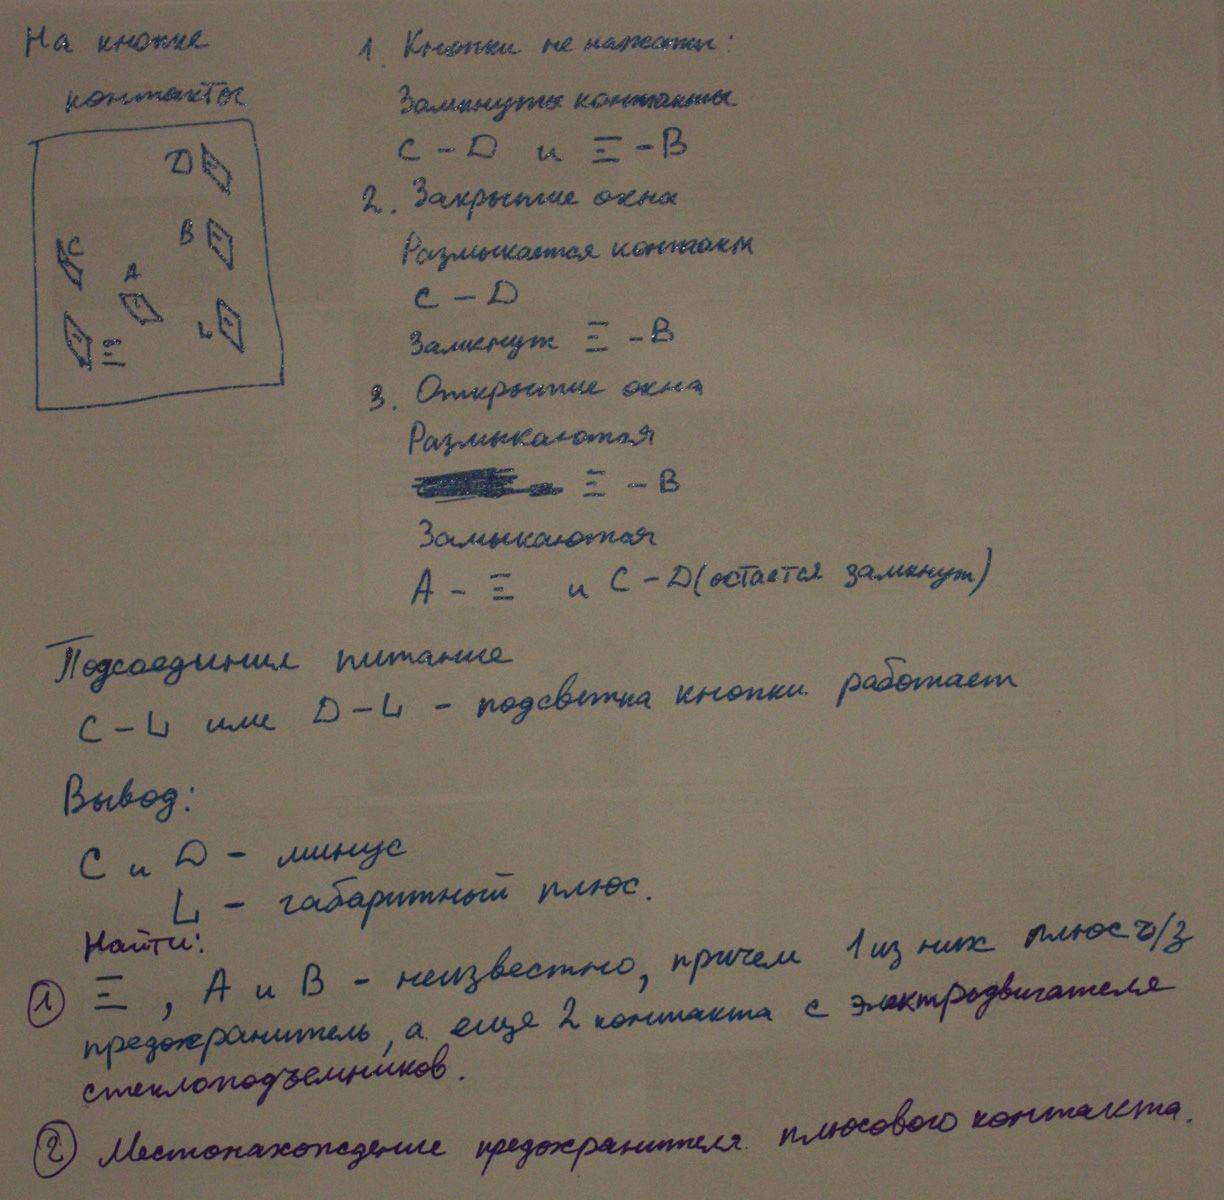 На кнопке
контакты
D
B
C
A
L
Ξ
1. Кнопки не нажаты:
Замкнуты контакты
C - D и Ξ - B
2. Закрытие окна
Размыкается контакт
C - D
Замкнут Ξ - B
3. Открытие окна
Размыкаются
Ξ - B
Замыкаются
A - Ξ и C - D (остается замкнут)
Подсоединил питание
C - L или D - L - подсветка кнопки работает
Вывод:
C и D - минус
L - габаритный плюс.
Найти:
1 Ξ, A и B - неизвестно, причем 1 из них плюс ч/з
предохранитель, а еще 2 контакта с электродвигателя
стеклоподъемников.
2 Местонахождение предохранителя плюсового контакта.